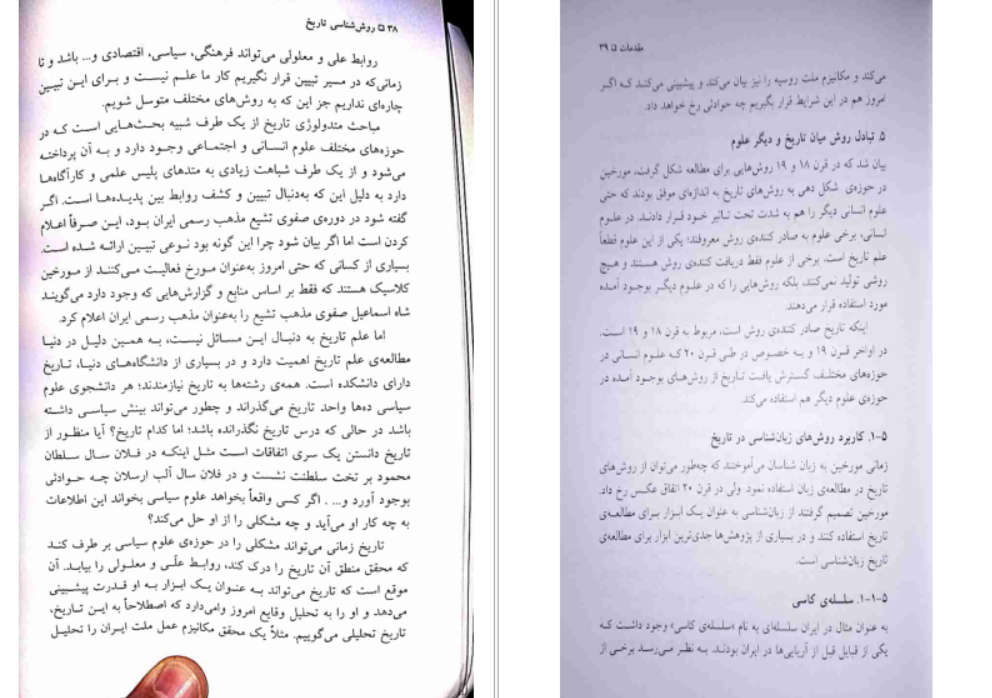 ۳۸ □ روش‌شناسی تاریخ
روابط علی و معلولی می‌تواند فرهنگی، سیاسی، اقتصادی و... باشد و تا
زمانی‌که در مسیر تبیین قرار نگیریم کار ما علم نیست و برای این تبیین
چاره‌ای نداریم جز این که به روش‌های مختلف متوسل شویم.
مباحث متدولوژی تاریخ از یک طرف شبیه بحث‌هایی است که در
حوزه‌های مختلف علوم انسانی و اجتماعی وجود دارد و به آن پرداخته
می‌شود و از یک طرف شباهت زیادی به متدهای پلیس علمی و کارآگاه‌ها
دارد به دلیل این که به‌دنبال تبیین و کشف روابط بین پدیده‌ها است. اگر
گفته شود در دوره‌ی صفوی تشیع مذهب رسمی ایران بود، این صرفاً اعلام
کردن است اما اگر بیان شود چرا این گونه بود نوعی تبیین ارائه شده است.
بسیاری از کسانی که حتی امروز به‌عنوان مورخ فعالیت می‌کنند از مورخین
کلاسیک هستند که فقط بر اساس منابع و گزارش‌هایی که وجود دارد می‌گویند
شاه اسماعیل صفوی مذهب تشیع را به‌عنوان مذهب رسمی ایران اعلام کرد.
اما علم تاریخ به دنبال این مسائل نیست، به همین دلیل در دنیا
مطالعه‌ی علم تاریخ اهمیت دارد و در بسیاری از دانشگاه‌های دنیا، تاریخ
دارای دانشکده است. همه‌ی رشته‌ها به تاریخ نیازمندند؛ هر دانشجوی علوم
سیاسی ده‌ها واحد تاریخ می‌گذراند و چطور می‌تواند بینش سیاسی داشته
باشد در حالی که درس تاریخ نگذرانده باشد؛ اما کدام تاریخ؟ آیا منظور از
تاریخ دانستن یک سری اتفاقات است مثل اینکه در فلان سال سلطان
محمود بر تخت سلطنت نشست و در فلان سال آلب ارسلان چه حوادثی
بوجود آورد و... . اگر کسی واقعاً بخواهد علوم سیاسی بخواند این اطلاعات
به چه کار او می‌آید و چه مشکلی را از او حل می‌کند؟
تاریخ زمانی می‌تواند مشکلی را در حوزه‌ی علوم سیاسی بر طرف کند
که محقق منطق آن تاریخ را درک کند، روابط علّی و معلولی را بیابد. آن
موقع است که تاریخ می‌تواند به عنوان یک ابزار به او قدرت پیشبینی
می‌دهد و او را به تحلیل وقایع امروز وامی‌دارد که اصطلاحاً به این تاریخ،
تاریخ تحلیلی می‌گوییم. مثلاً یک محقق مکانیزم عمل ملت ایران را تحلیل
مقدمات □ ۳۹
می‌کند و مکانیزم ملت روسیه را نیز بیان می‌کند و پیشبینی می‌کند که اگر
امروز هم در این شرایط قرار بگیریم چه حوادثی رخ خواهد داد.
۵. تبادل روش میان تاریخ و دیگر علوم
بیان شد که در قرن ۱۸ و ۱۹ روش‌هایی برای مطالعه شکل گرفت، مورخین
در حوزه‌ی شکل دهی به روش‌های تاریخ به اندازه‌ای موفق بودند که حتی
علوم انسانی دیگر را هم به شدت تحت تاثیر خود قرار دادند. در علوم
انسانی، برخی علوم به صادر کننده‌ی روش معروفند؛ یکی از این علوم قطعاً
علم تاریخ است. برخی از علوم فقط دریافت کننده‌ی روش هستند و هیچ
روشی تولید نمی‌کنند، بلکه روش‌هایی را که در علوم دیگر بوجود آمده
مورد استفاده قرار می‌دهند.
اینکه تاریخ صادر کننده‌ی روش است، مربوط به قرن ۱۸ و ۱۹ است.
در اواخر قرن ۱۹ و به خصوص در طی قرن ۲۰ که علوم انسانی در
حوزه‌های مختلف گسترش یافت تاریخ از روش‌های بوجود آمده در
حوزه‌ی علوم دیگر هم استفاده می‌کند.
۵-۱. کاربرد روش‌های زبان‌شناسی در تاریخ
زمانی مورخین به زبان شناسان می‌آموختند که چه‌طور می‌توان از روش‌های
تاریخ در مطالعه‌ی زبان استفاده نمود. ولی در قرن ۲۰ اتفاق عکس رخ داد.
مورخین تصمیم گرفتند از زبان‌شناسی به عنوان یک ابزار برای مطالعه‌ی
تاریخ استفاده کنند و در بسیاری از پژوهش‌ها جدی‌ترین ابزار برای مطالعه‌ی
تاریخ زبان‌شناسی است.
۵-۱-۱. سلسله‌ی کاسی
به عنوان مثال در ایران سلسله‌ای به نام «سلسله‌ی کاسی» وجود داشت که
یکی از قبایل قبل از آریایی‌ها در ایران بودند. به نظر می‌رسد برخی از